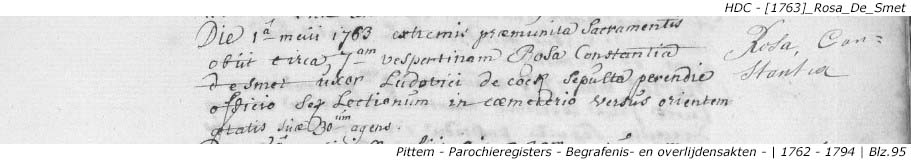 HDC - [1763]_Rosa_De_Smet
Die 1ª maii 1763 extremis præmunita Sacramentis
obiit circa 7am vespertinam Rosa Constantia
desmet uxor Ludovici de cock sepulta perendie
officio sex Lectionum in cæmeterio versus orientem
ætatis suæ 30um agens.
Rosa Con=
stantia
Pittem - Parochieregisters - Begrafenis- en overlijdensakten - | 1762 - 1794 | Blz.95